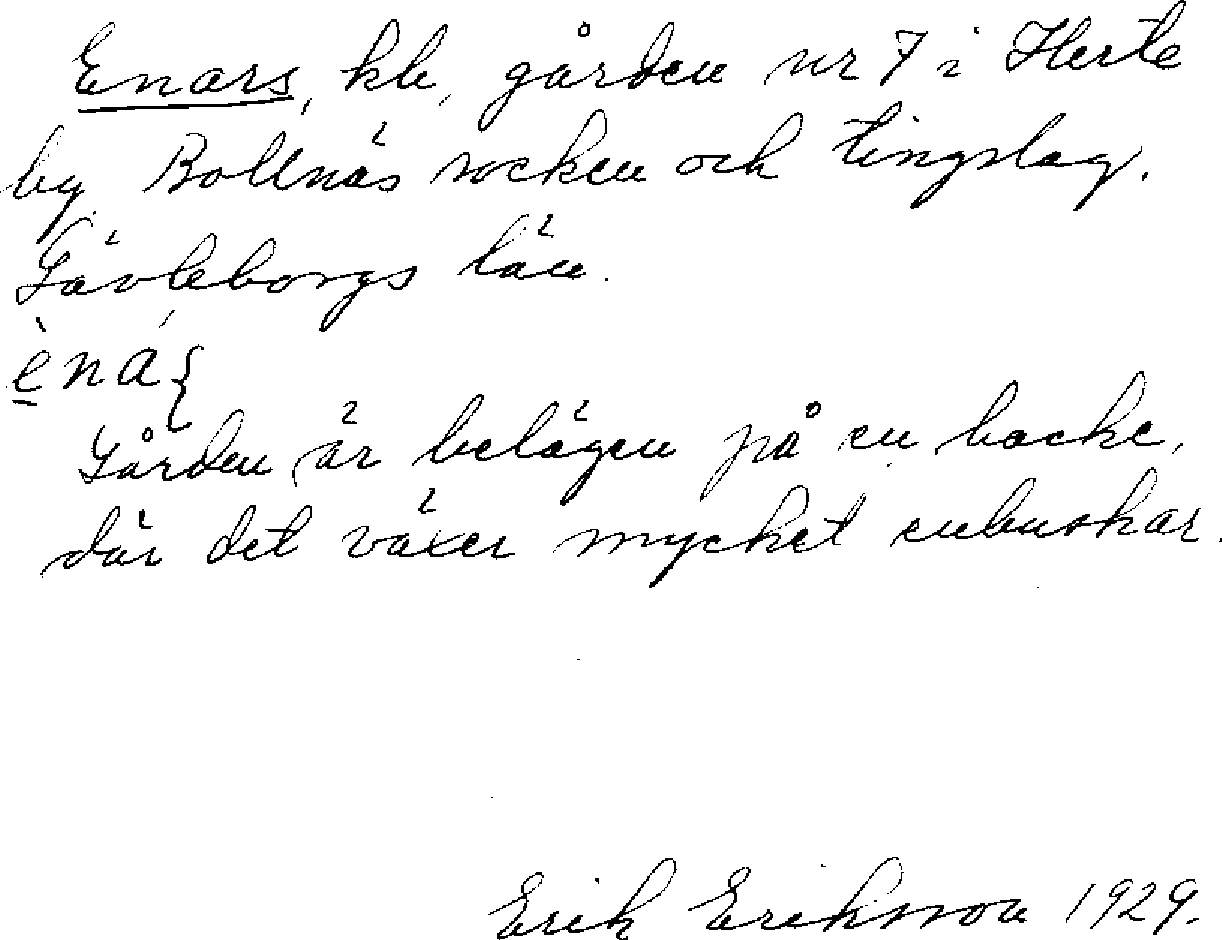 Enars, kb, gården nr 7 i Herte
by Bollnäs socken och tingslag.
Gävleborgs län.
Gården är belägen på en backe,
där det växer mycket enbuskar.
Erik Eriksson 1929.